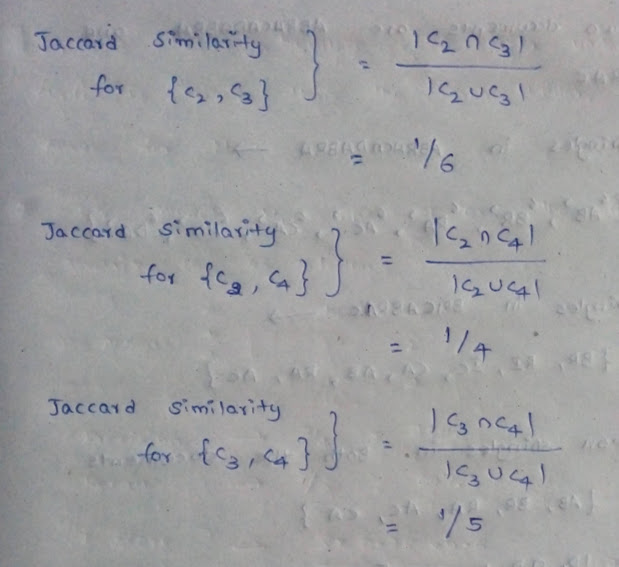 Jaccard Similarity for {C2, C3} } = |C2 ∩ C3| / |C2 ∪ C3|
= 1/6
Jaccard Similarity for {C2, C4} } = |C2 ∩ C4| / |C2 ∪ C4|
= 1/4
Jaccard Similarity for {C3, C4} } = |C3 ∩ C4| / |C3 ∪ C4|
= 1/5